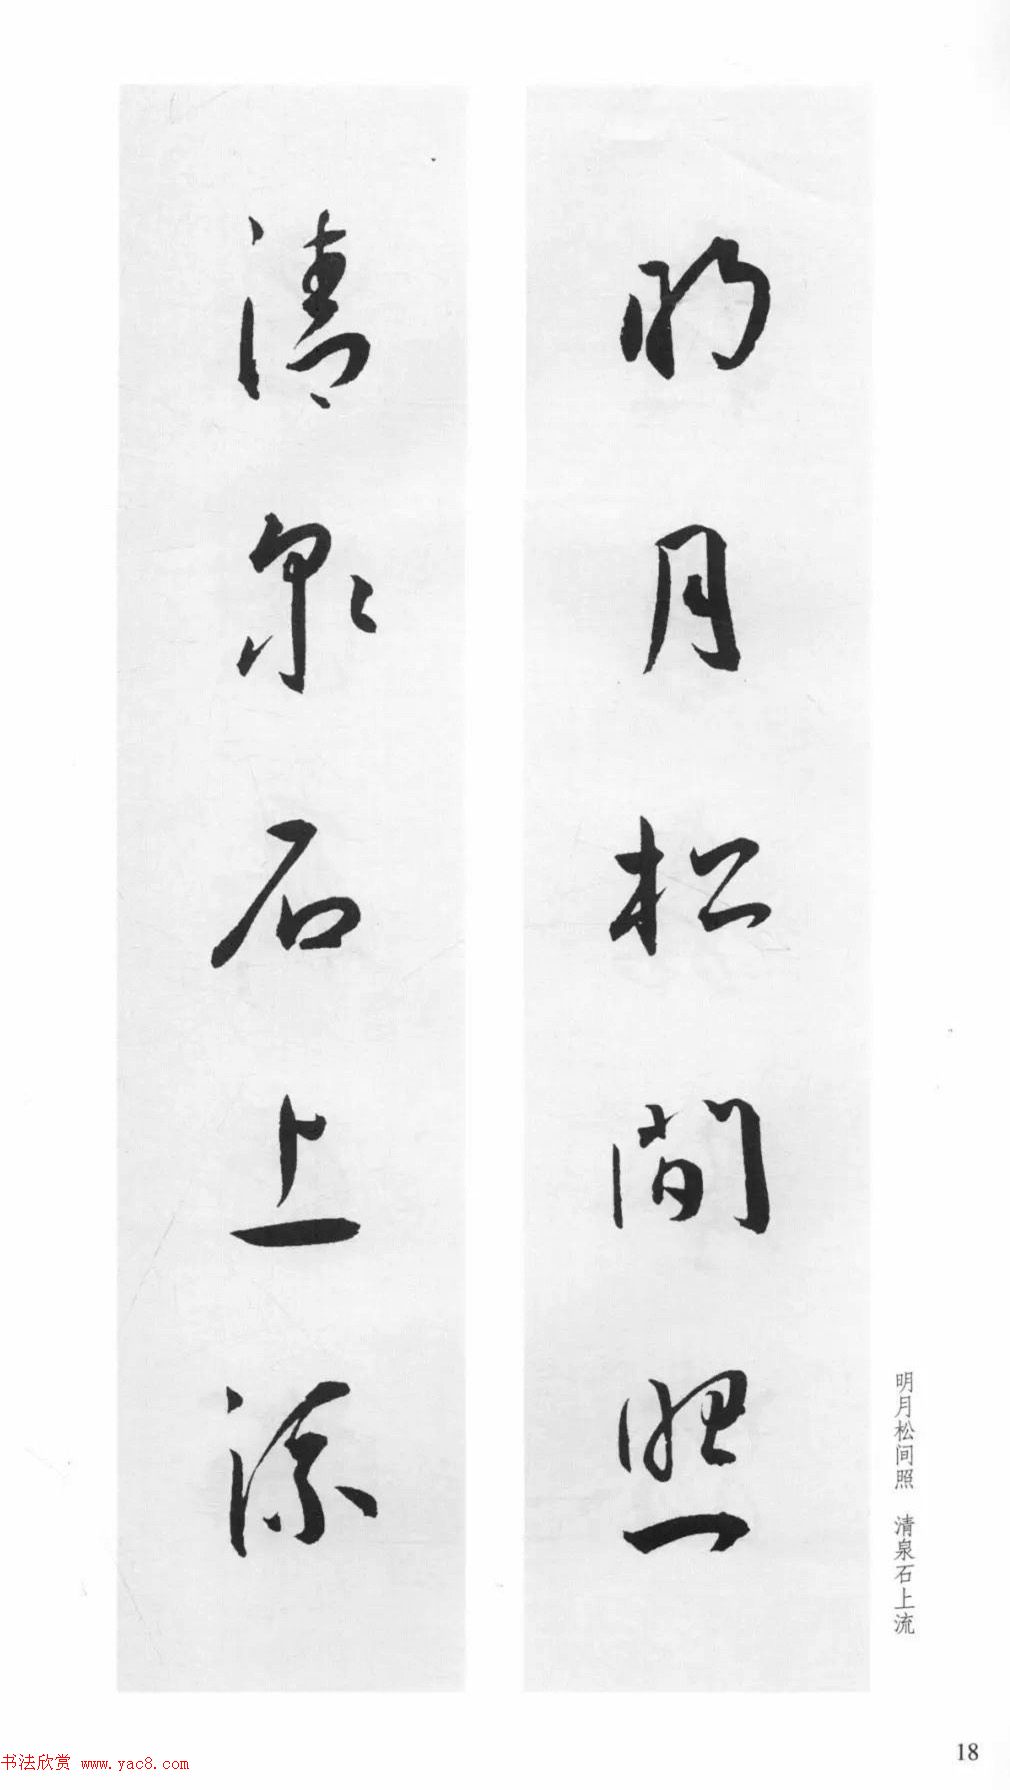 明月松間照
清泉石上流
明月松间照 清泉石上流
18
书法欣赏 www.yac8.com